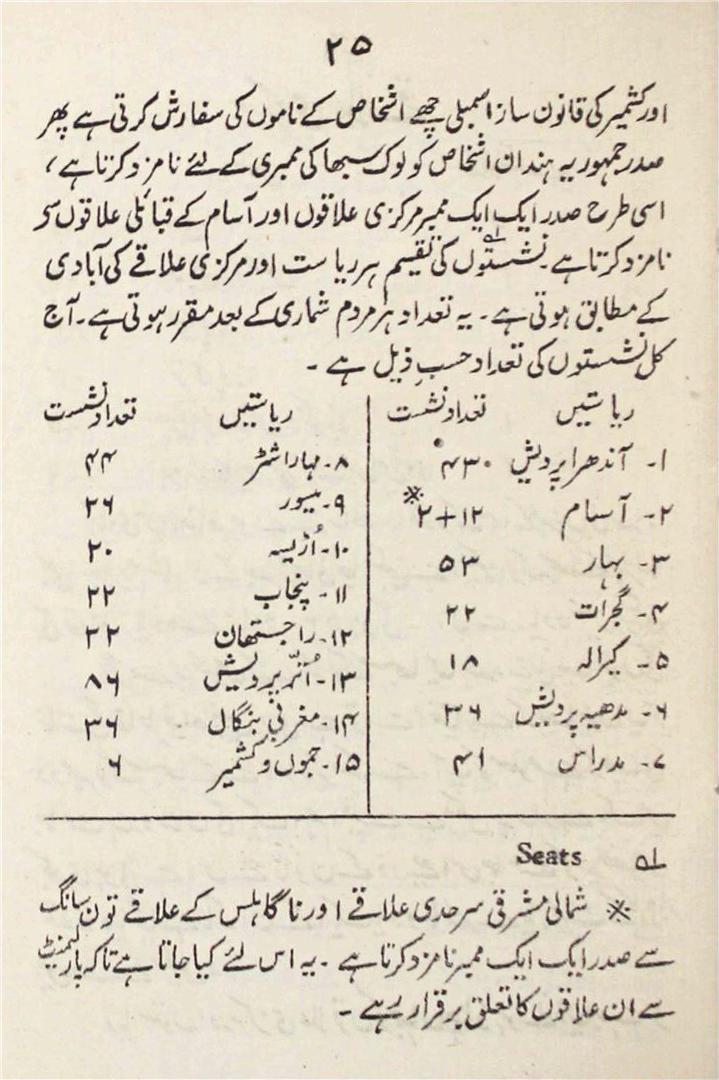 ۲۵
اور کشمیر کی قانون ساز اسمبلی چھے اشخاص کے ناموں کی سفارش کرتی ہے پھر
صدر جمہوریہ ہند ان اشخاص کو لوک سبھا کی ممبری کے لئے نامزد کرتا ہے ،
اسی طرح صدر ایک ایک ممبر مرکزی علاقوں اور آسام کے قبائلی علاقوں سے
نامزد کرتا ہے۔ نشستوں۱؎ کی تقسیم ہر ریاست اور مرکزی علاقے کی آبادی
کے مطابق ہوتی ہے۔ یہ تعداد ہر مردم شماری کے بعد مقرر ہوتی ہے۔ آج
کل نشستوں کی تعداد حسبِ ذیل ہے ۔
ریاستیں تعداد نشست
۱۔ آندھرا پردیش ۴۳
۲۔ آسام ۱۲+۲※
۳۔ بہار ۵۳
۴۔ گجرات ۲۲
۵۔ کیرالہ ۱۸
۶۔ مدھیہ پردیش ۳۶
۷۔ مدراس ۴۱
ریاستیں تعداد نشست
۸۔ مہاراشٹر ۴۴
۹۔ میسور ۲۶
۱۰۔ اُڑیسہ ۲۰
۱۱۔ پنجاب ۲۲
۱۲۔ راجستھان ۲۲
۱۳۔ اُتّر پردیش ۸۶
۱۴۔ مغربی بنگال ۳۶
۱۵۔ جموں و کشمیر ۶
۱؎ Seats
※ شمالی مشرقی سرحدی علاقے اور ناگا ہلس کے علاقے تون سانگ
سے صدر ایک ایک ممبر نامزد کرتا ہے ۔ یہ اس لئے کیا جاتا ہے تاکہ پارلیمنٹ
سے ان علاقوں کا تعلق برقرار رہے ۔